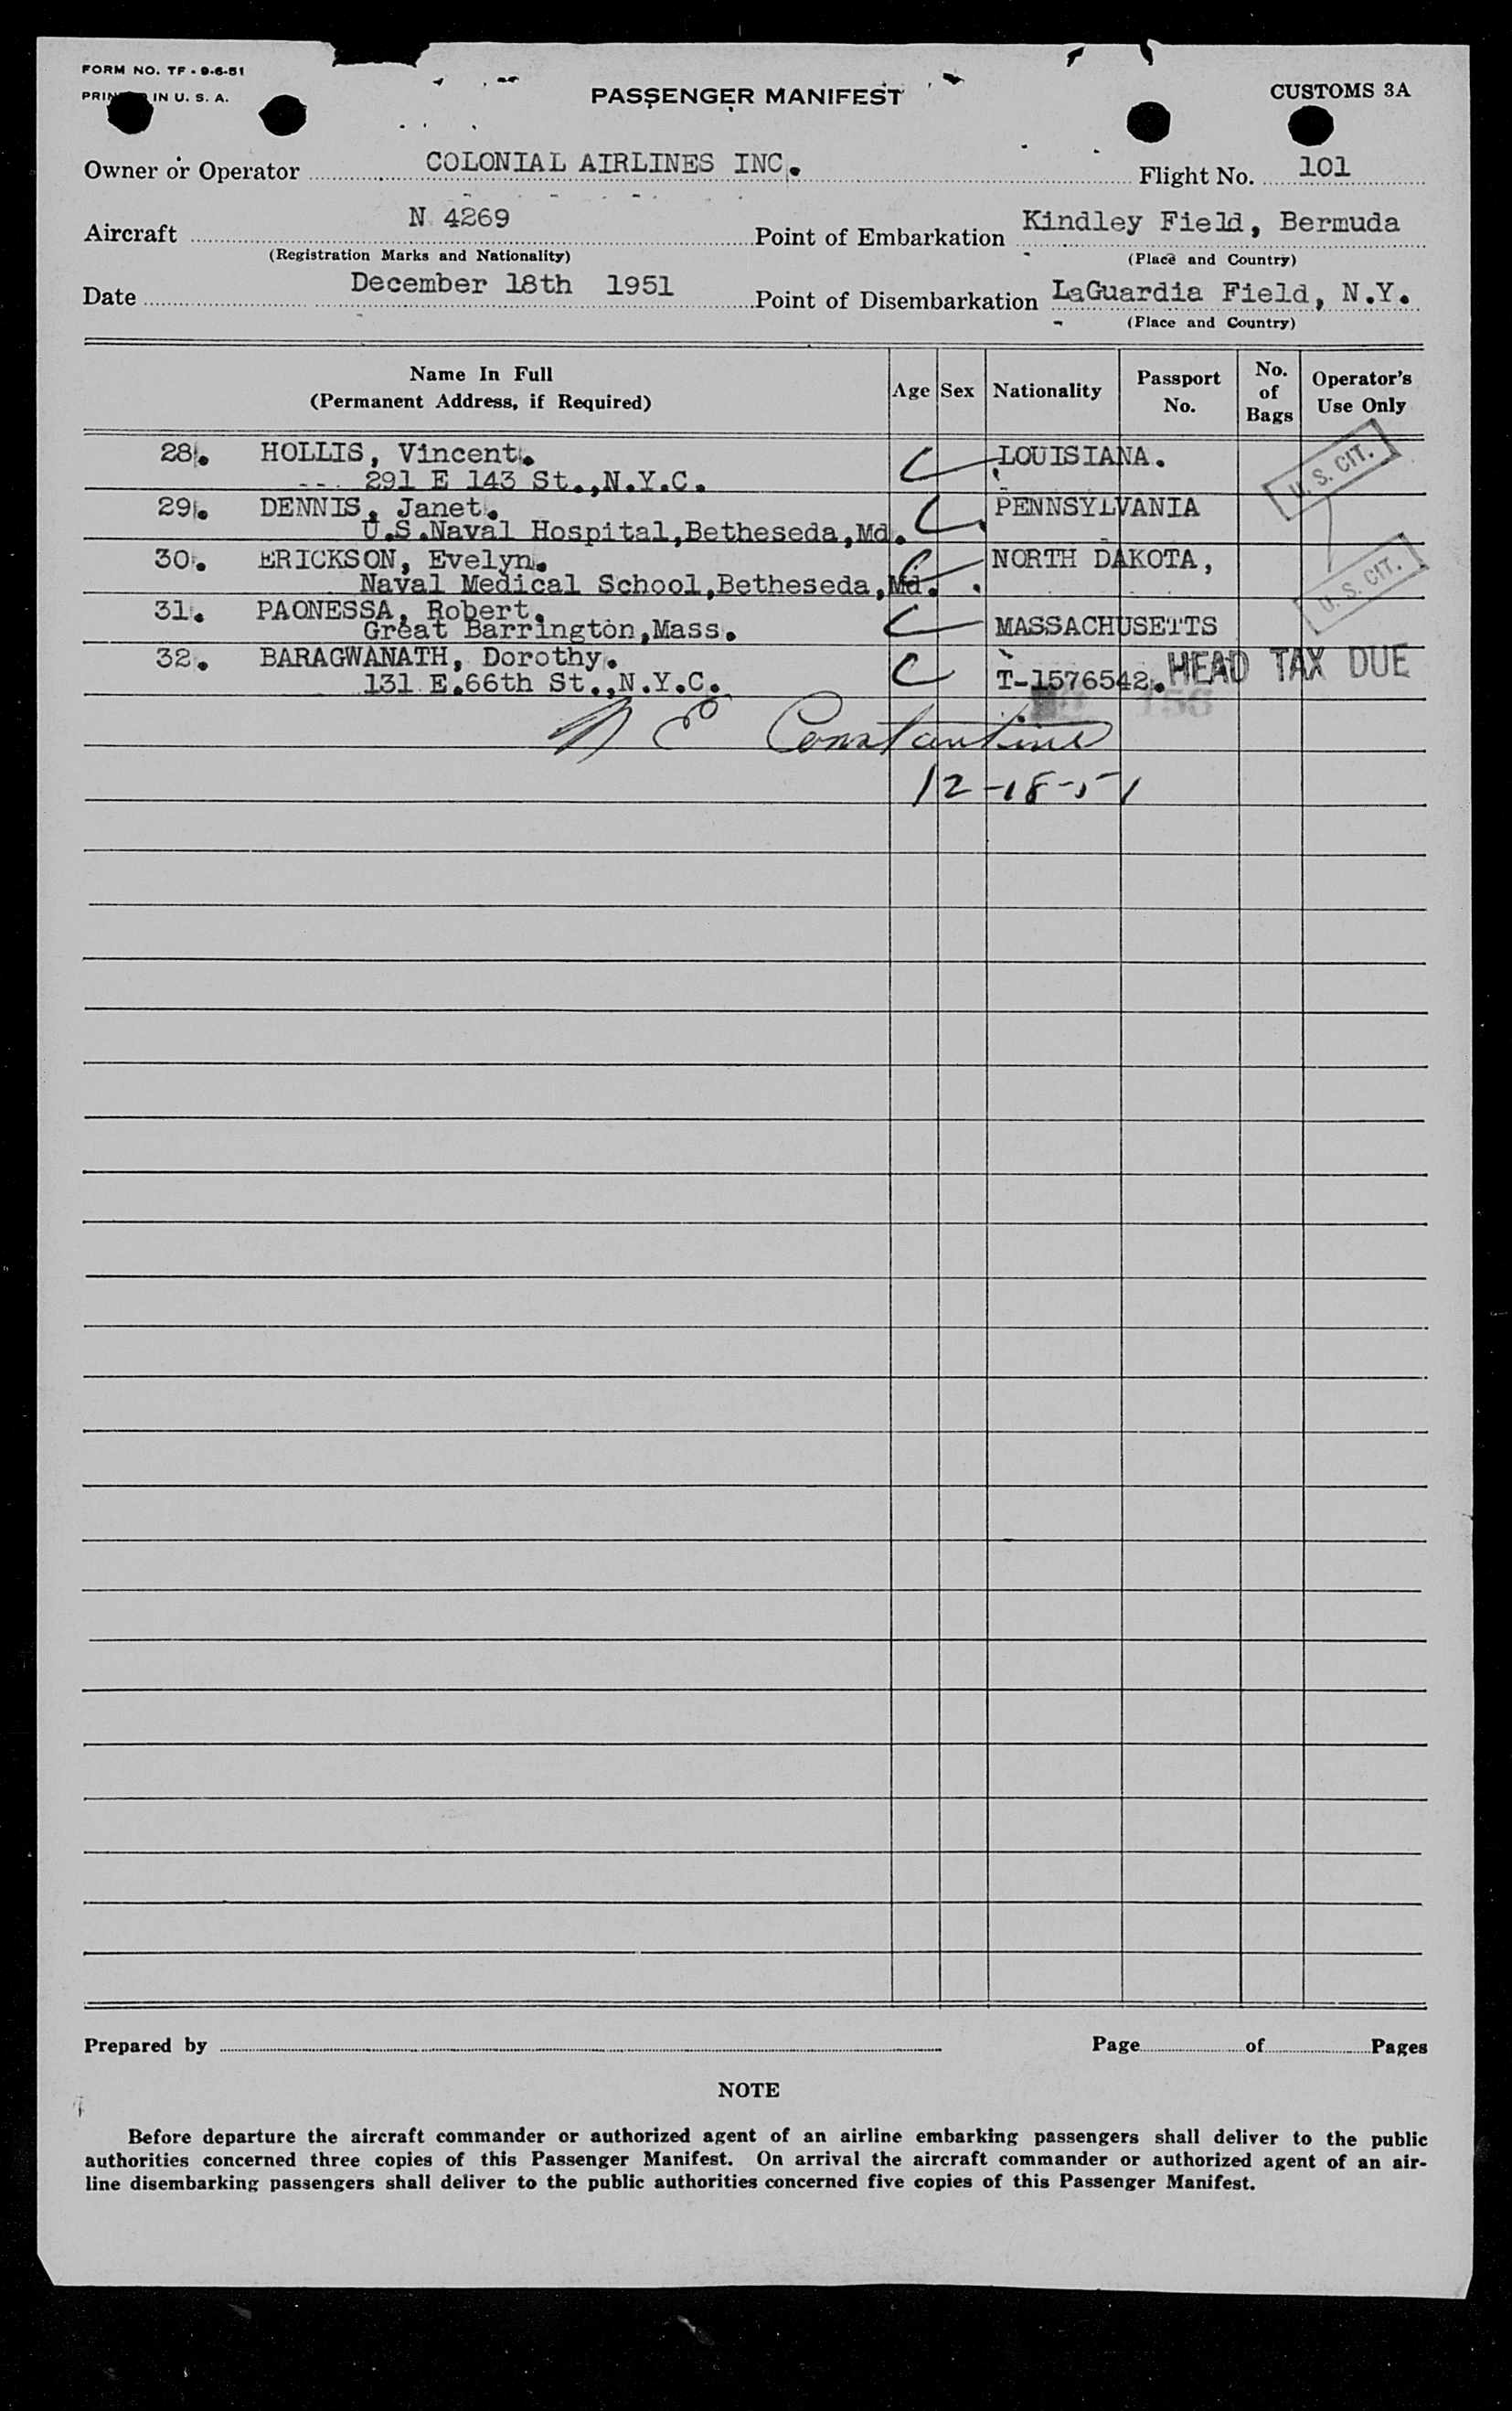 FORM NO. TF - 9-6-51
PRINTED IN U. S. A.
PASSENGER MANIFEST
CUSTOMS 3A
Owner or Operator COLONIAL AIRLINES INC. Flight No. 101
Aircraft N 4269 Point of Embarkation Kindley Field, Bermuda
(Registration Marks and Nationality) (Place and Country)
Date December 18th 1951 Point of Disembarkation LaGuardia Field, N.Y.
(Place and Country)
Name In Full (Permanent Address, if Required) Age Sex Nationality Passport No. No. of Bags Operator's Use Only
28. HOLLIS, Vincent. C LOUISIANA. U. S. CIT.
291 E 143 St.,N.Y.C.
29. DENNIS, Janet. C PENNSYLVANIA
U.S.Naval Hospital,Betheseda,Md.
30. ERICKSON, Evelyn. C NORTH DAKOTA, U. S. CIT.
Naval Medical School,Betheseda,Md.
31. PAONESSA, Robert.
Great Barrington,Mass. C MASSACHUSETTS
32. BARAGWANATH, Dorothy. C HEAD TAX DUE
131 E.66th St.,N.Y.C. T-1576542.
156
N E Constantine
12-18-51
Prepared by Page of Pages
NOTE
Before departure the aircraft commander or authorized agent of an airline embarking passengers shall deliver to the public
authorities concerned three copies of this Passenger Manifest. On arrival the aircraft commander or authorized agent of an air-
line disembarking passengers shall deliver to the public authorities concerned five copies of this Passenger Manifest.